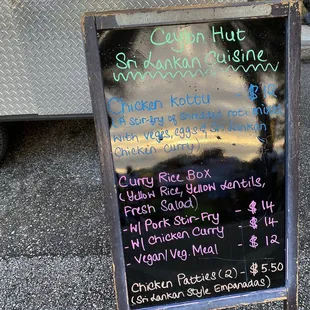 Ceylon Hut
Sri Lankan Cuisine
Chicken Kottu
(A stir-fry of shredded roti mixed
with veges, eggs & Sri Lankan
Chicken Curry)
Curry Rice Box
(Yellow Rice, Yellow Lentils,
Fresh Salad)
- W/ Pork Stir-Fry - $14
- W/ Chicken Curry - $14
- Vegan/Veg. Meal - $12
Chicken Patties (2) - $5.50
(Sri Lankan Style Empanadas)